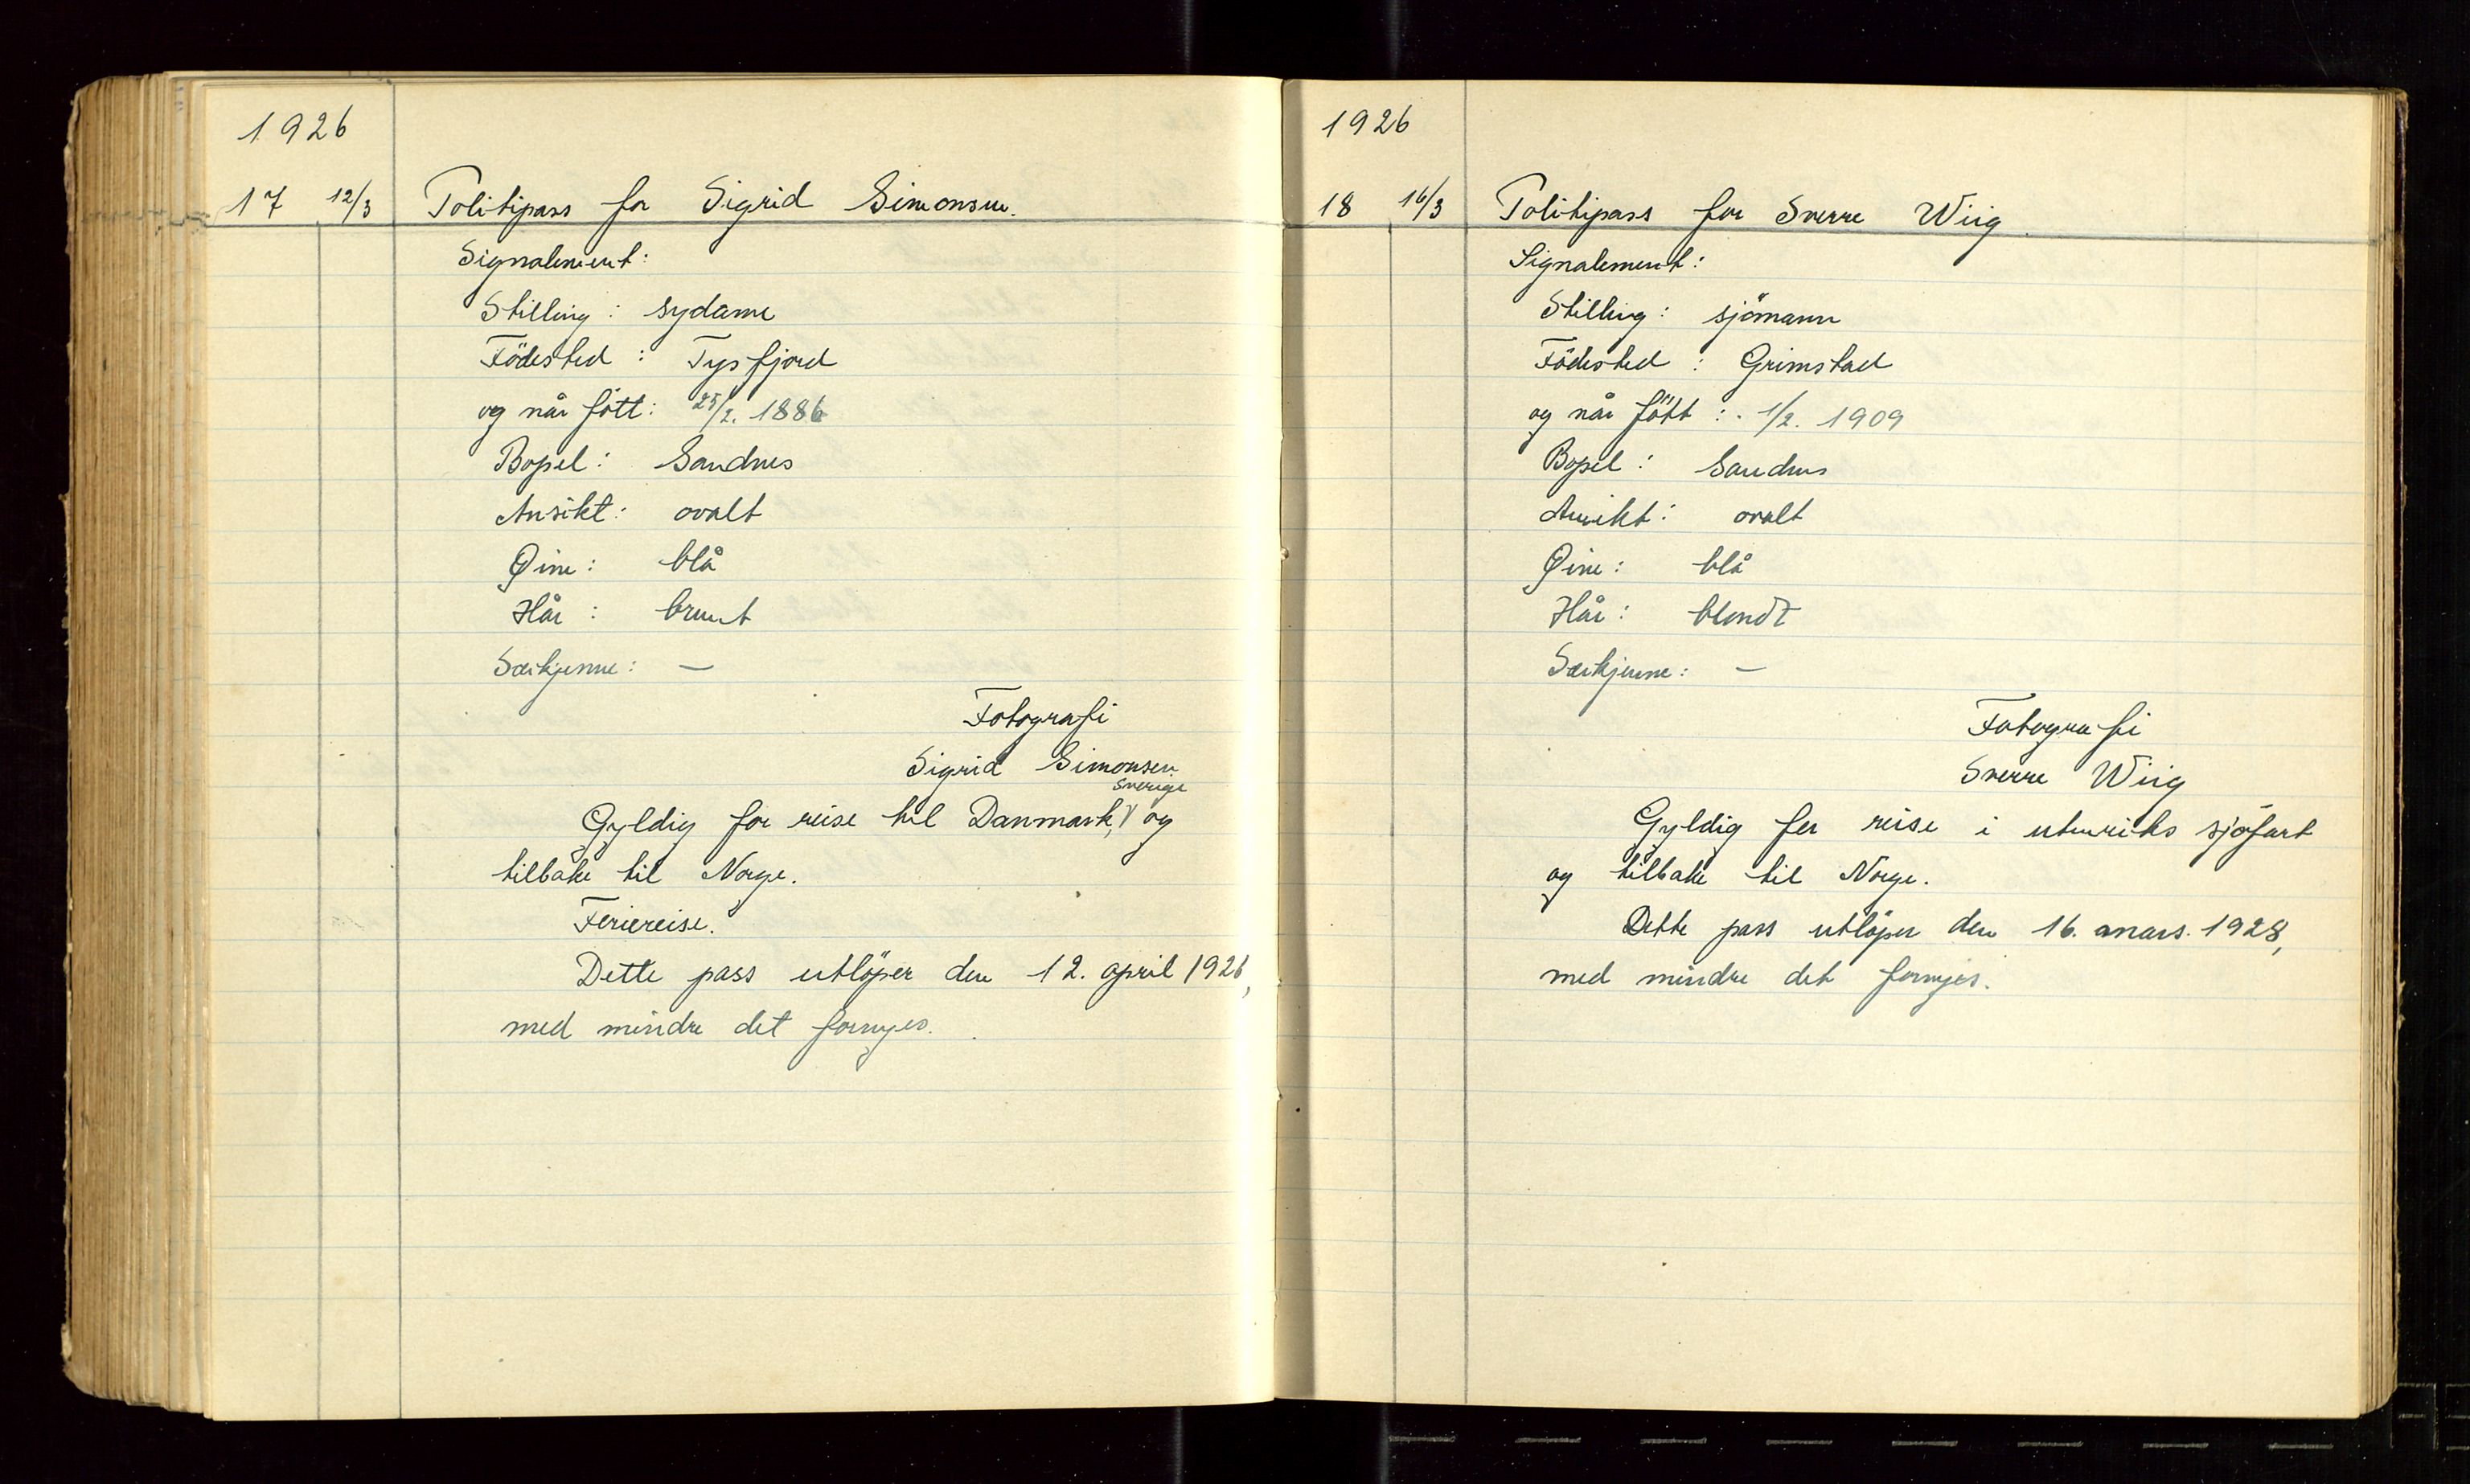 1926
17 12/3 Politipass for Sigrid Simonsen.
Signalement:
Stilling: sydame
Födested: Tysfjord
og når fött: 25/2. 1886
Bopel: Sandnes
Ansikt: ovalt
Øine: blå
Hår: brunt
Særkjenne: —
Fotografi
Sigrid Simonsen
Sverige
Gyldig for reise til Danmark, og
tilbake til Norge.
Feriereise.
Dette pass utlöper den 12. april 1926,
med mindre det fornyes.
1926
18 16/3 Politipass for Sverre Wiig
Signalement:
Stilling: sjömann
Födested: Grimstad
og når fött: 1/2. 1909
Bopel: Sandnes
Ansikt: ovalt
Øine: blå
Hår: blondt
Særkjenne: —
Fotografi
Sverre Wiig
Gyldig for reise i utenriks sjöfart
og tilbake til Norge.
Dette pass utlöper den 16. mars. 1928,
med mindre det fornyes.